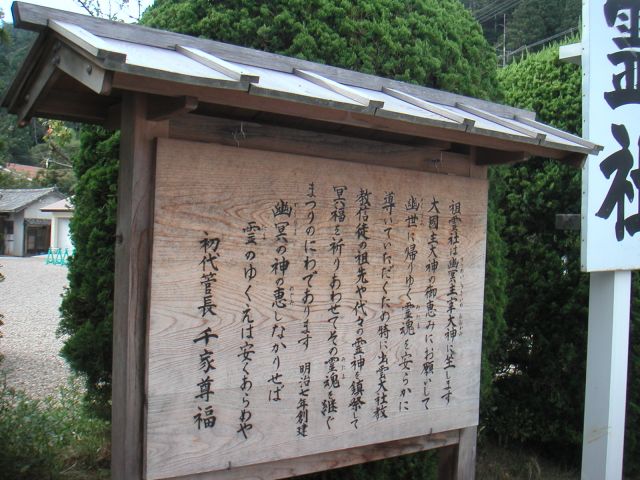 祖霊社は幽冥主宰大神に坐します
大國主大神の御恵みにお願いして
幽世に帰りゆく霊魂を安らかに
導いていただくため特に出雲大社教
教信徒の祖先や代々の霊神を鎮祭して
冥福を祈りあわせてその霊魂を継ぐ
まつりのにわであります　明治七年創建
幽冥の神の恵しなかりせば
霊のゆくえは安くあらめや
初代管長 千家尊福
霊社